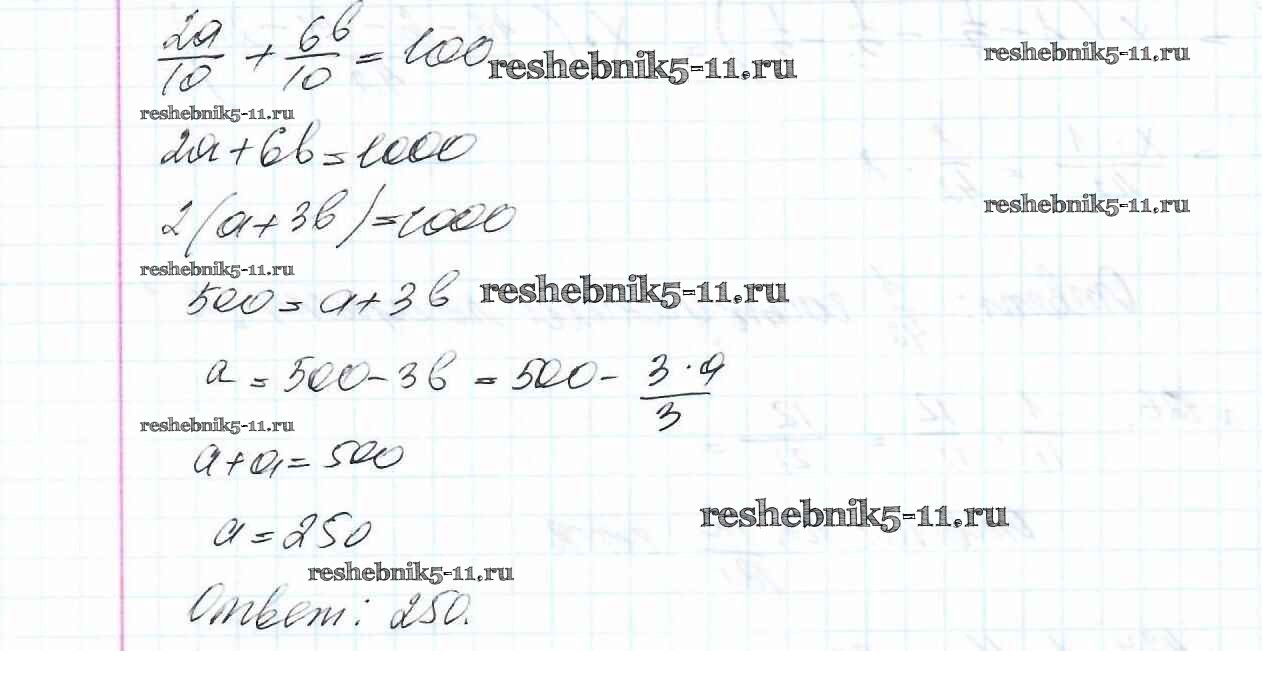 2a/10 + 6b/10 = 100
reshebnik5-11.ru
reshebnik5-11.ru
reshebnik5-11.ru
2a + 6b = 1000
2(a + 3b) = 1000
reshebnik5-11.ru
reshebnik5-11.ru
500 = a + 3b
reshebnik5-11.ru
a = 500 - 3b = 500 - 3·a/3
reshebnik5-11.ru
a + a = 500
a = 250
reshebnik5-11.ru
reshebnik5-11.ru
Ответ: 250.